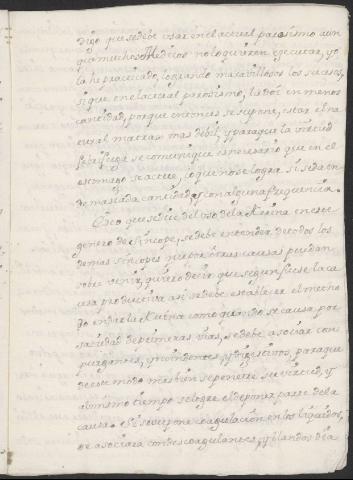 digo que se debe usar en el actual parosismo aun
que muchos Medicos no lo quieren egecutar, yo
la he practicado, logrando maravillosos los sucesos,
si que en el actual parosismo, la doi en menos
cantidad, porque entonces se supone, estar el na
tural mas flaco mas debil, y para que la virtud
febrifuga se comunique es necesario que en el
estomago se actue, lo que no se logra si se da en
demasiada cantidad, y con alguna frequencia.
Esto que se dice del uso de la Kina en este
genero de sincope, se debe entender de todos los
demas sincopes que por otras causas puedan
sobre venir, quiero decir que segun fuese la ca
usa productiva asi se debe establecer el methο
do en dar la Kina como quando se causa por
saciedad de primeras vias, se debe asociar con
purgantes, y digestivos, para que
de este modo mas bien se penetre su virtud, y
al mismo tiempo se logre el deponer parte de la
causa. Si se supone coagulacion en los liquidos,
se asociara con descoagulantes, y blandos dia